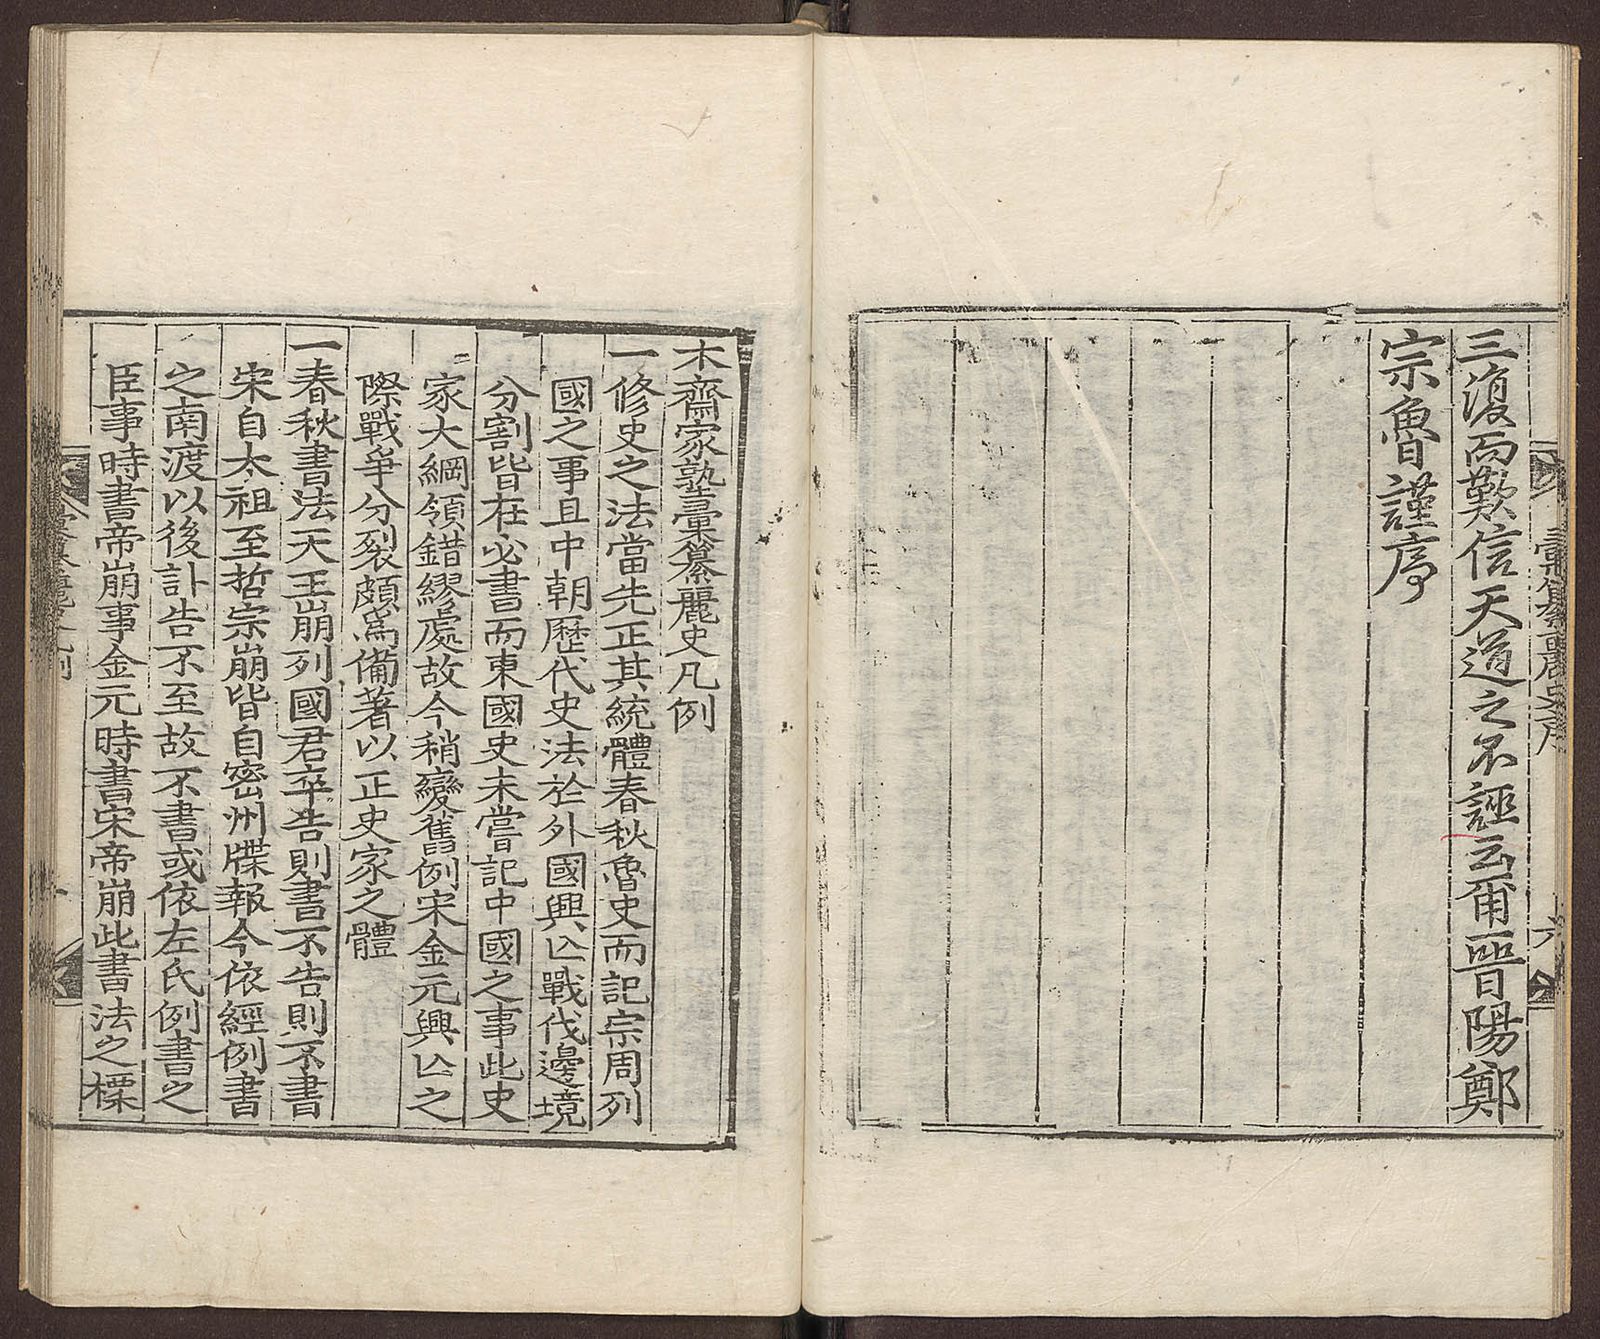 三復而歎信天道之不誣云爾晉陽鄭
宗魯謹序
彙纂麗史序
六
木齋家塾彙纂麗史凡例
一修史之法當先正其統體春秋魯史而記宗周列
國之事且中朝歷代史法於外國興亾戰伐邊境
分割皆在必書而東國史未嘗記中國之事此史
家大綱領錯繆處故今稍變舊例宋金元興亾之
際戰爭分裂頗爲備著以正史家之體
一春秋書法天王崩列國君卒告則書不告則不書
宋自太祖至哲宗崩皆自密州牒報今依經例書
之南渡以後訃告不至故不書或依左氏例書之
臣事時書帝崩事金元時書宋帝崩此書法之櫽